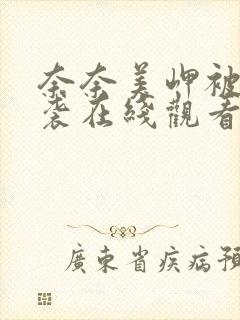 奈奈美岬被
袭在綫觀看
廣東省疾病預